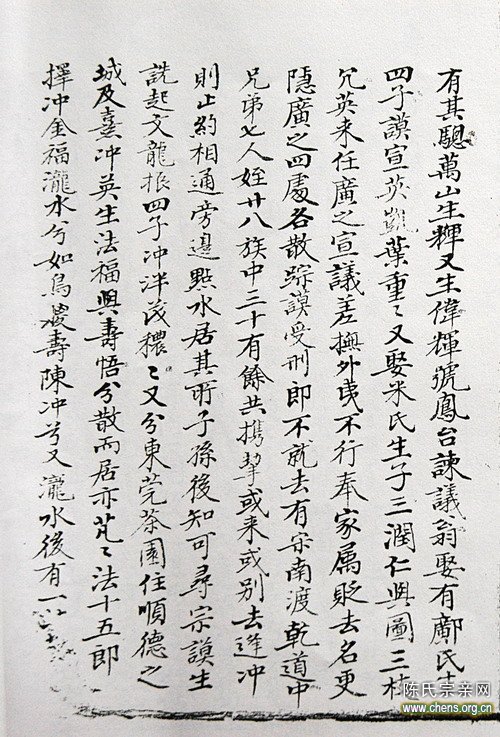 有其驄萬山生輝又生偉輝號鳳台諫議翁娶有鄺氏
四子謨宣英凱葉重〻又娶米氏生子三潤仁與圖三枝
冗英来任廣之宣議差撫外夷不行奉家属貶去名更
隠廣之四處各散踪謨受刑即不就去有宗南渡乾道中
兄弟七人姪廿八族中三十有餘共携挈或来或别去逢冲
則止約相通旁邊點水居其所子孫後知可尋宗謨生
詵起文龍振四子冲泮茂穠〻又分東莞茶園住順德之
城及熹冲英生法福與壽悟分散而居亦芃〻法十五郎
擇冲金福瀧水兮如鳥壽陳冲兮又瀧水後有一
陈氏宗亲网
www.chens.org.cn